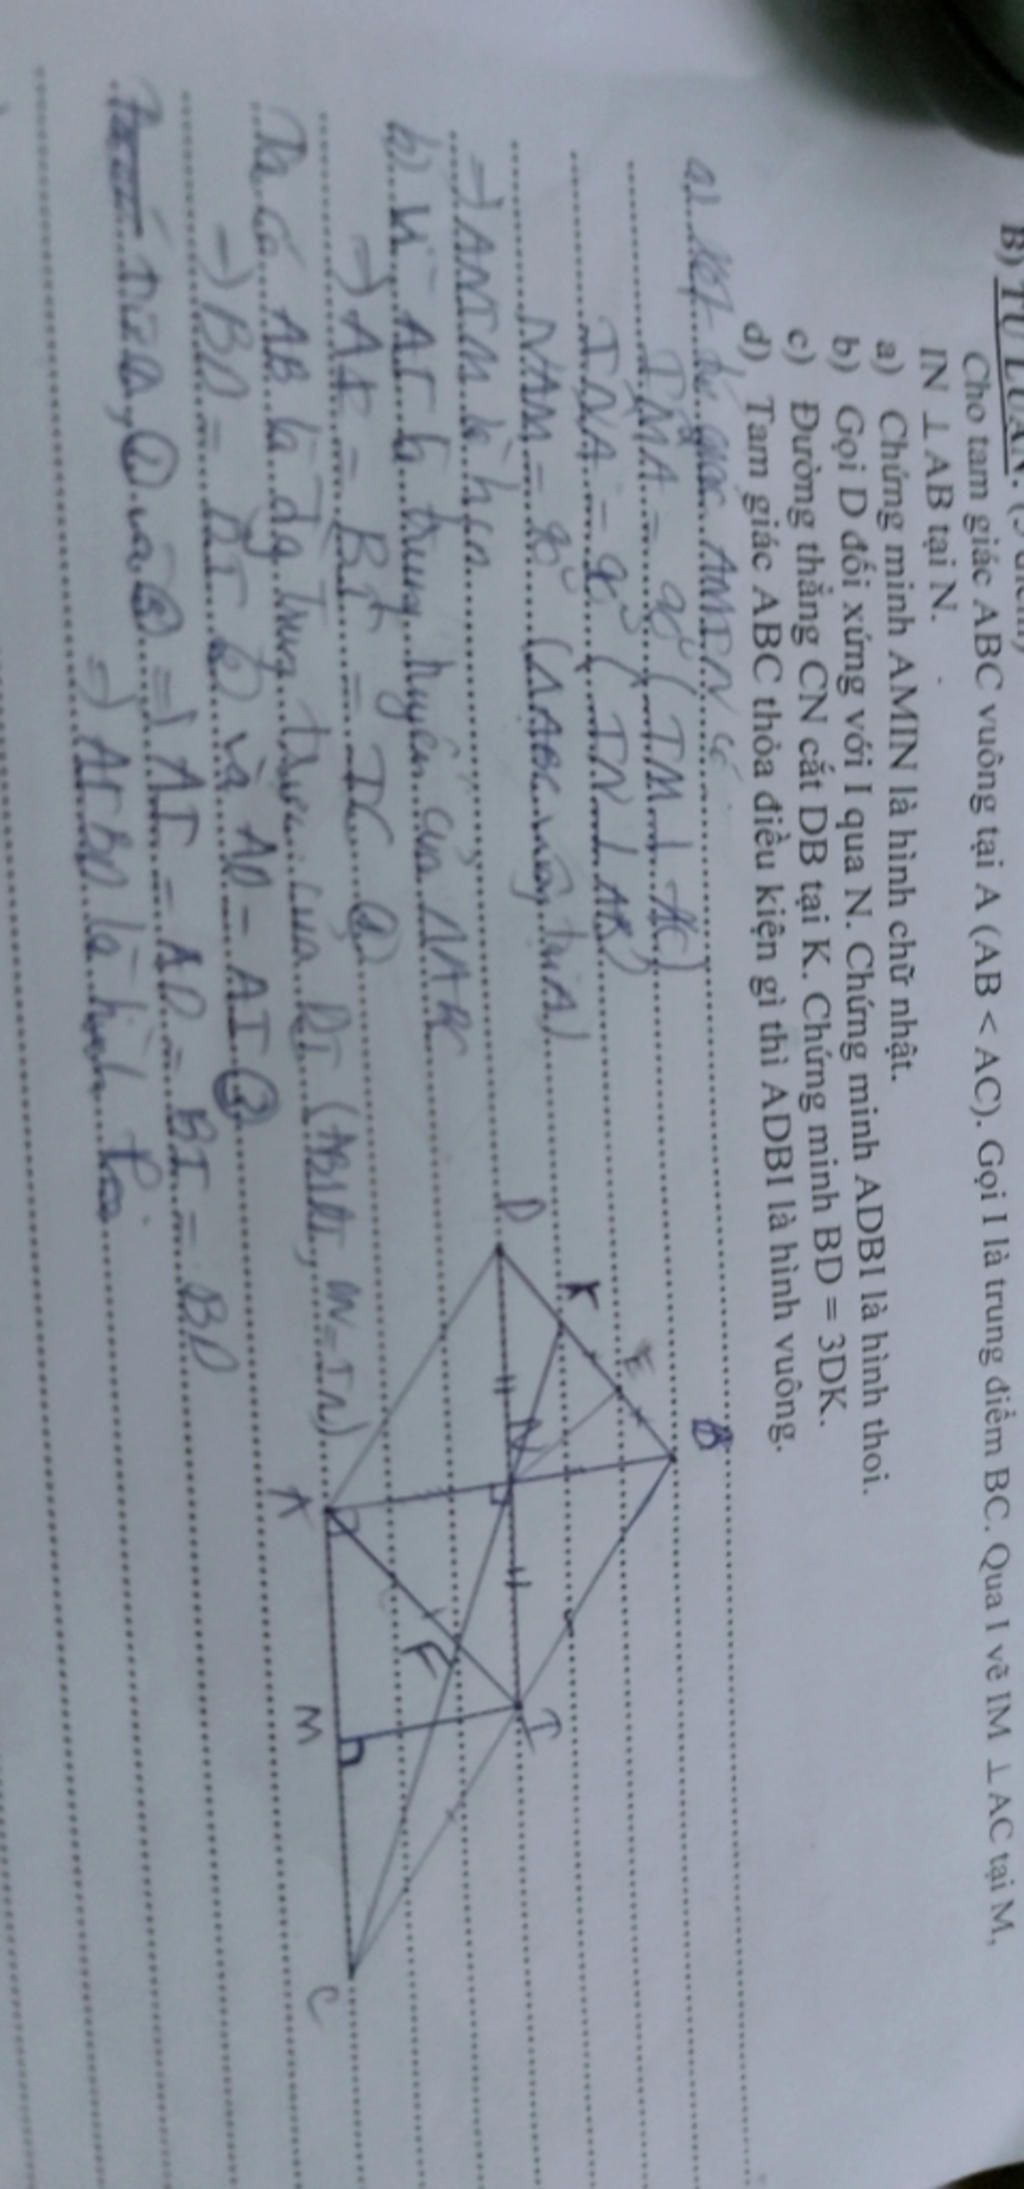 B) TỰ LUẬN. (5 điểm)
Cho tam giác ABC vuông tại A (AB < AC). Gọi I là trung điểm BC. Qua I vẽ IM ⊥ AC tại M,
IN ⊥ AB tại N.
a) Chứng minh AMIN là hình chữ nhật.
b) Gọi D đối xứng với I qua N. Chứng minh ADBI là hình thoi.
c) Đường thẳng CN cắt DB tại K. Chứng minh BD = 3DK.
d) Tam giác ABC thỏa điều kiện gì thì ADBI là hình vuông.
a) Xét tứ giác AMIN có
IMA = 90° (IM ⊥ AC)
INA = 90° (IN ⊥ AB)
NAM = 90° (ΔABC vuông tại A)
=) AMIN là hcn
b) Vì AI là trung tuyến của ΔABC
=) AI = BI = IC ①
Ta có AB là đg trung trực của DI (AB⊥DI, DN=IN)
=) BD = BI ② và AD = AI ③
Từ ①, ② và ③ =) AI = AD = BI = BD
=) AIBD là hình thoi
B
E
K
D
N
I
A
F
M
C